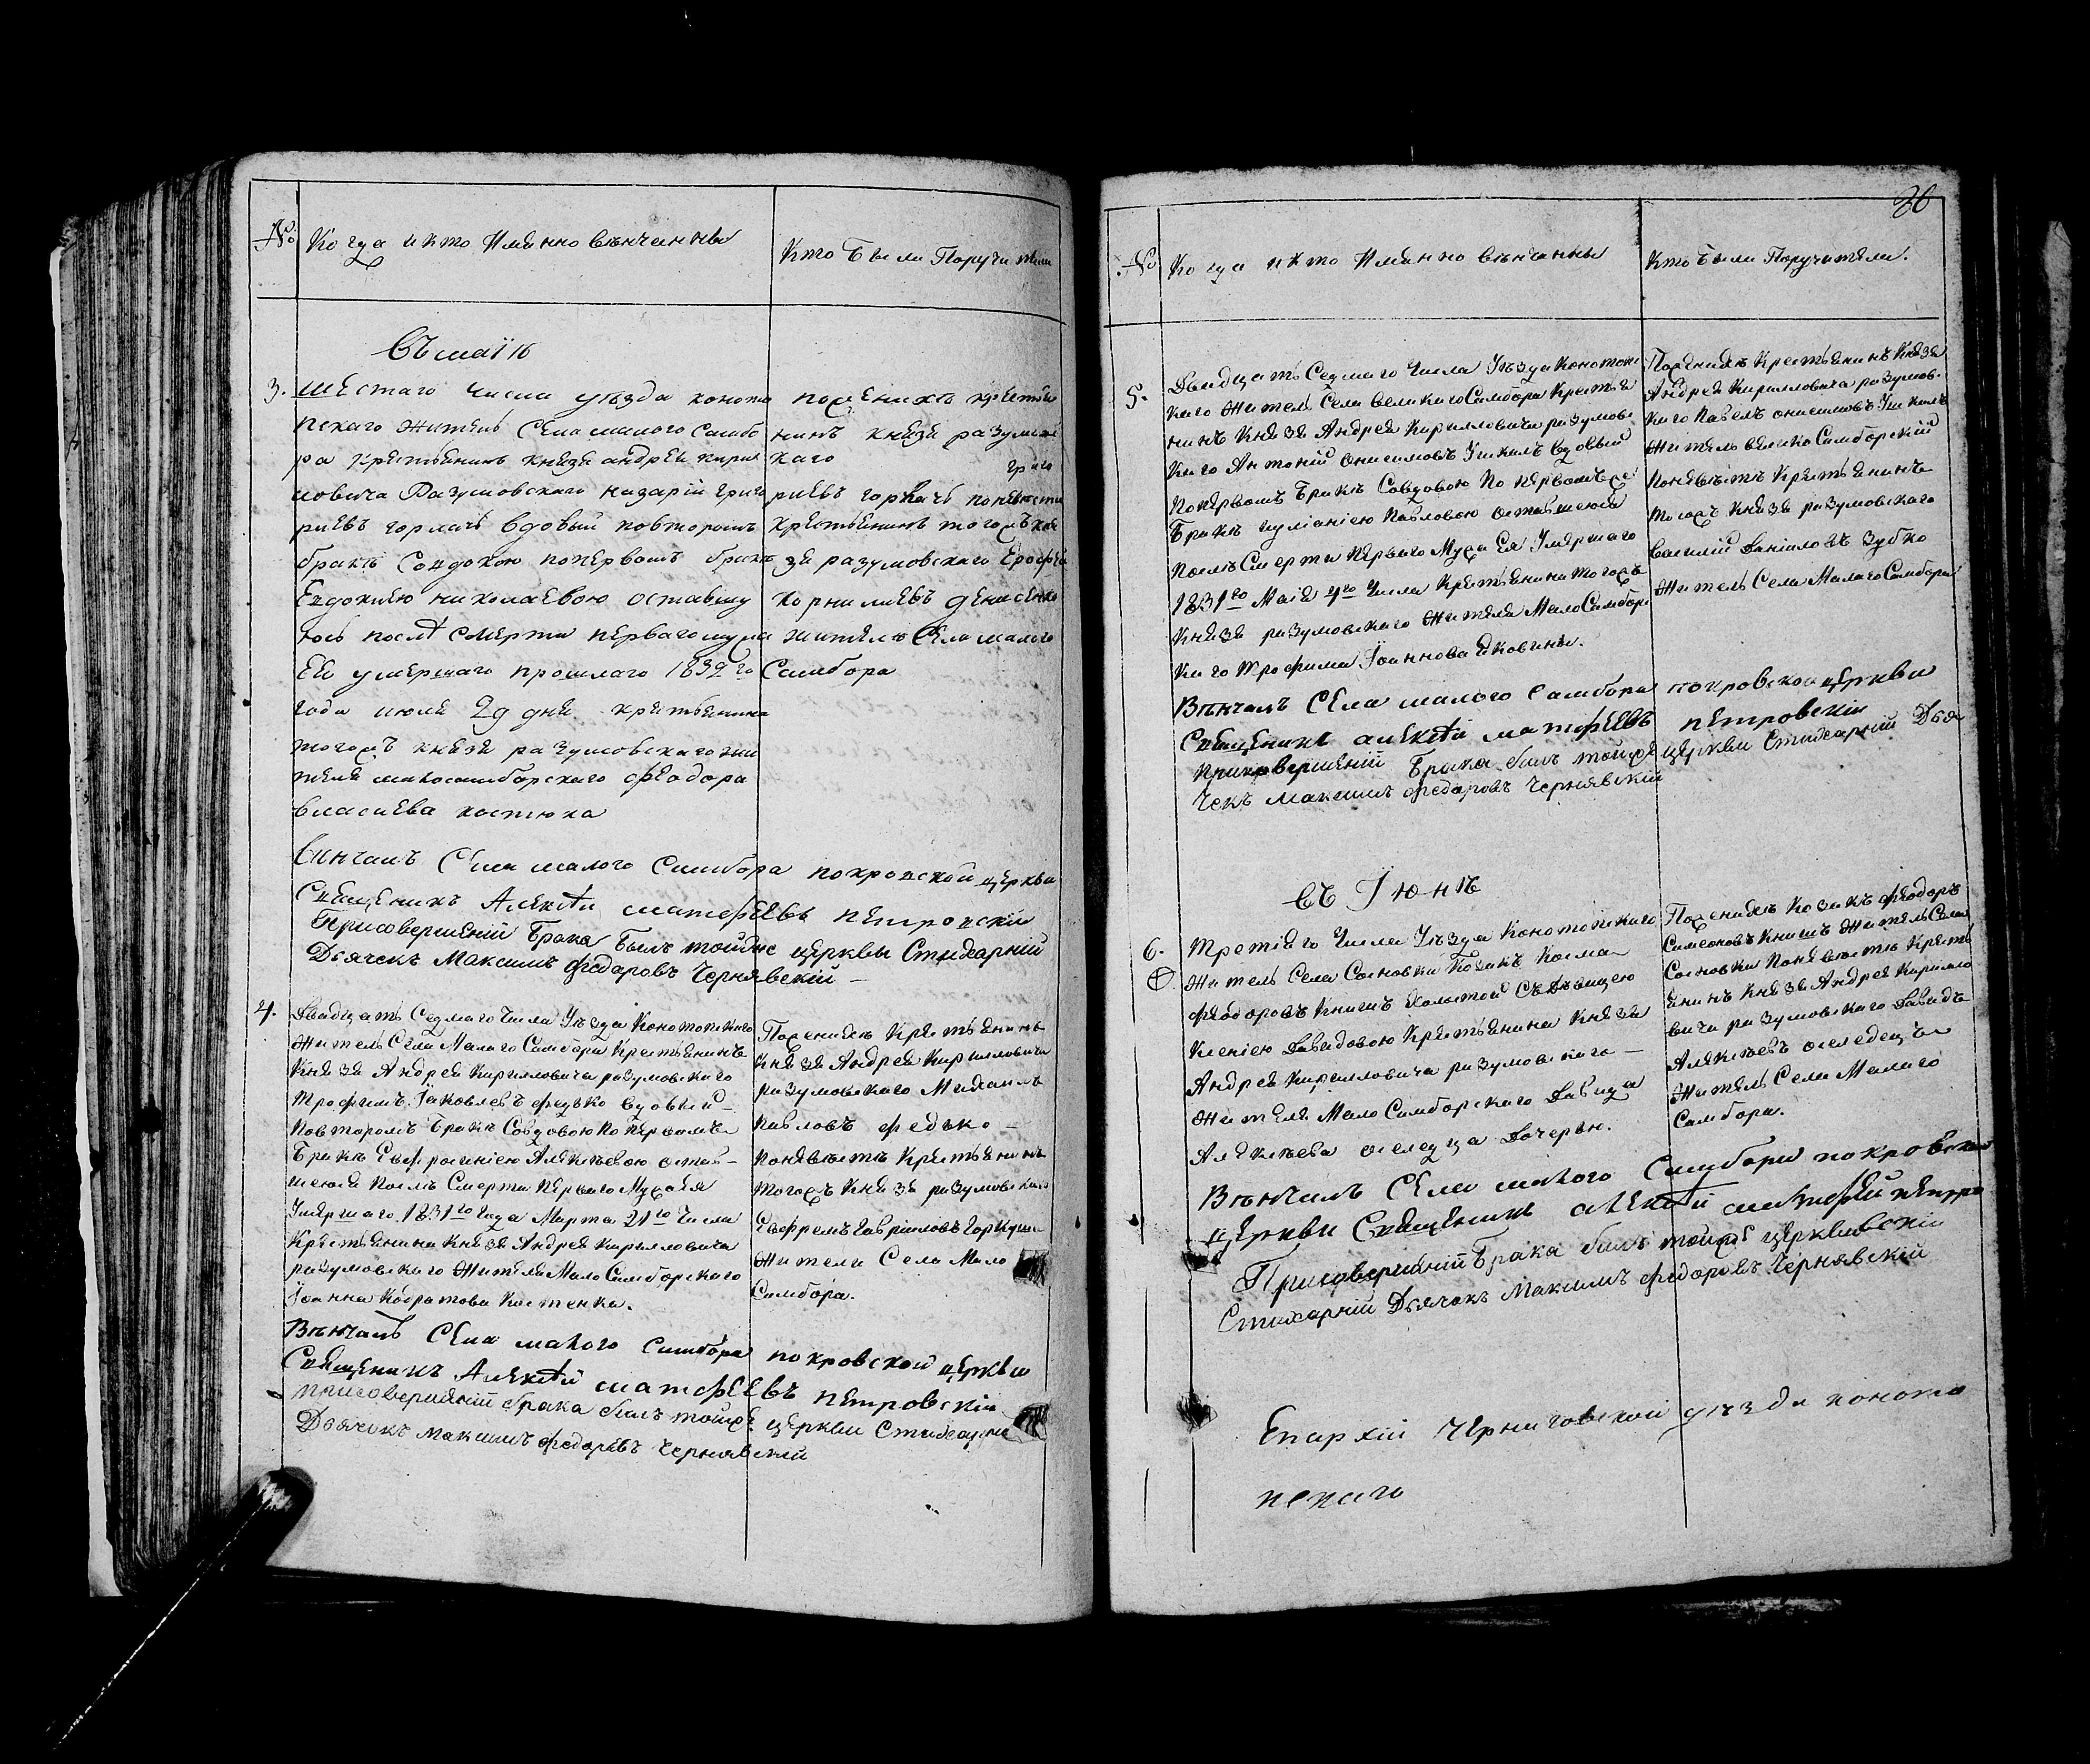 №
Когда и кто Имянно венчанны
Кто были Поручители
Въ маїи
3.
шестаго числа уезда коното
пскаго житель села малого самбо
ра крестьянинъ князя андрея кирил
ловича Разумовскаго назарій григо
риевъ горкачь вдовый повторомъ
бракѣ совдовою попервомъ бракѣ
Евдокиею николаевою оставшу
юсь послѣ смерти перваго мужа
Ее умершаго прошлаго 1832 го
года июля 29 дня крестьянина
тогожъ князя разумовскаго жи
теля малосамборскаго феодора
власиева костюка
поженихѣ крестья
нинъ князя разумовс
каго григо
риевъ горкачь поневестѣ
крестьянинъ тогожъ кня
зя разумовскаго Ерофей
Корнилиевъ денисенко
жители села малого
Самбора
Винчалъ села малого Самбора покровской церкви
Священикъ Алексѣй матфеевъ петровскій
Присовершеній Брака Былъ тойже церквы Стихарній
Дьячекъ Максимъ федоровъ Чернявскій
4.
Двадцать Седмаго Числа Уезда Конотопскаго
Житель Села Малаго Самбора Крестьянинъ
Князя Андрея Кирилловича разумовскаго
Трофимъ Іаковлевъ федько вдовый
Повторомъ Бракѣ Совдовою По первомъ
Бракѣ Евфросиніею Алексѣевою остав-
шеюся Послѣ Смерти Перваго Мужа Ея
Умершаго 1831го Года Марта 21го Числа
Крестьянина Князя Андрея Кирилловича
разумовскаго Жителя Мало Самборскаго
Іоанна Кодратова Костенка.
Поженихѣ Крестьянинъ
Князя Андрея Кирилловича
разумовскаго Михаилъ
Павловъ федько
Поневестѣ Крестьянинъ
Тогожъ Князя разумовскаго
Ефремъ Гавриловъ
Жители Села Мало
Самбора.
Вѣнчалъ Села малого Самбора покровской церкви
Священикъ Алексѣй матфеевъ петровскій
присовершеній брака былъ тойже церкви Стихарній
Дьячекъ максимъ федоровъ Чернявскій
26
№
Когда и кто Имянно венчанны
Кто Были Поручители.
5.
Двадцать Седмаго Числа Уезда Конотопс
каго Житель Села Великаго Самбора Крестья
нинъ Князя Андрея Кирилловича разумовс
каго Антоній Онисимовъ Ушкалъ вдовый
Попервомъ Бракѣ Совдовою По первомъ же
Бракѣ Іуліаніею Павловою оставшеюся
Послѣ Смерти Перваго Мужа Ея Умершаго
1831го Маія 4го Числа Крестьянина тогожъ
Князя разумовскаго Жителя Мало Самборс
каго Трофима Іоаннова Яковины.
Поженихѣ Крестьянинъ Князя
Андрея Кирилловича разумов-
каго Павелъ онисимовъ Ушкалъ
Житель велико Самборскій
Поневестѣ Крестьянинъ
тогожъ Князя разумовскаго
Василій Даніиловъ Зубко
Житель Села Малаго Самбора
Вѣнчалъ Села малого Самбора покровской церкви
Священикъ алексѣй матфеевъ петровскій
присовершеній Брака былъ тойже церкви Стихарній Дья
Чекъ Максимъ федоровъ Чернявскій
Въ Іюнѣ
6.
Третіяго Числа Уезда Конотопскаго
Житель Села Сосновки Козакъ Косма
феодоровъ Книшъ Холостой Съ Девицею
Ксеніею Давидовою Крестьянина Князя
Андрея Кирилловича разумовскаго
Жителя Мало Самборскаго Давида
Алексѣева оселедца Дочерью.
Поженихѣ Козакъ феодоръ
Симеоновъ Книшъ Житель Села
Сосновки Поневестѣ Кресть
янинъ Князя Андрея Кирилло
вича разумовскаго Давидъ
Алексѣевъ оселедецъ
Житель Села Малаго
Самбора.
Вѣнчалъ Села малого Самбора покровской
церкви Священикъ алексѣй матфеевъ петро
вскій
Присовершеній Брака былъ тойже церкви
Стихарній Дьячокъ Максимъ федоровъ Чернявскій
Епархіи Черниговской уезда коното
пскаго